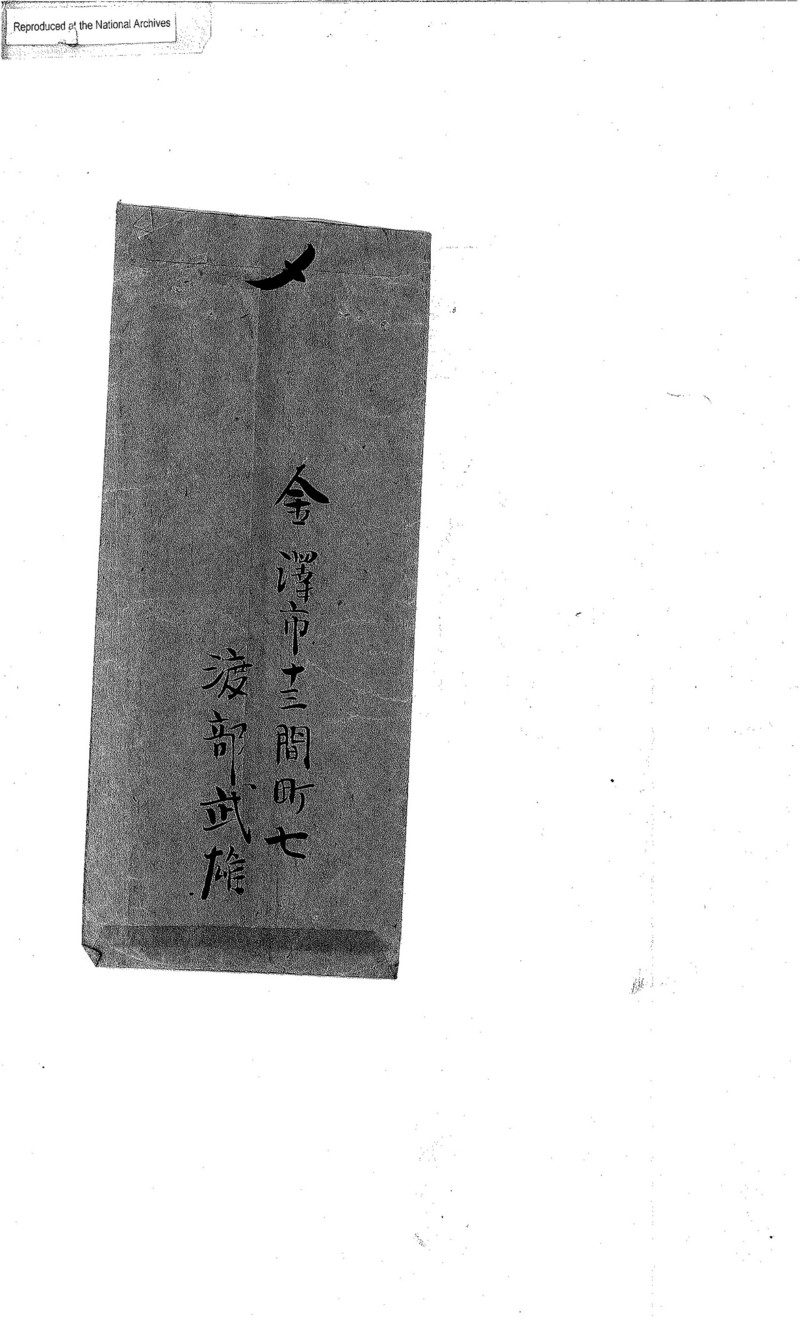 Reproduced at the National Archives
〆
金澤市十三間町七
渡部武雄